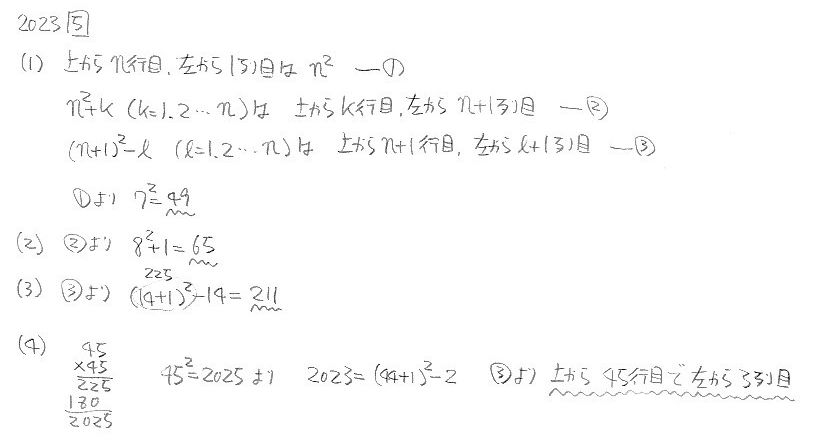 2023 5
(1) 上からn行目、左から1列目は n² ―①
n²+k (k=1,2…n)は 上からk行目、左からn+1列目 ―②
(n+1)²-l (l=1,2…n)は 上からn+1行目、左からl+1列目 ―③
①より 7²=49
(2) ②より 8²+1=65
225
(3) ③より (14+1)²-14=211
(4) 45
×45
225
180
2025
45²=2025より 2023=(44+1)²-2 ③より 上から45行目で左から3列目